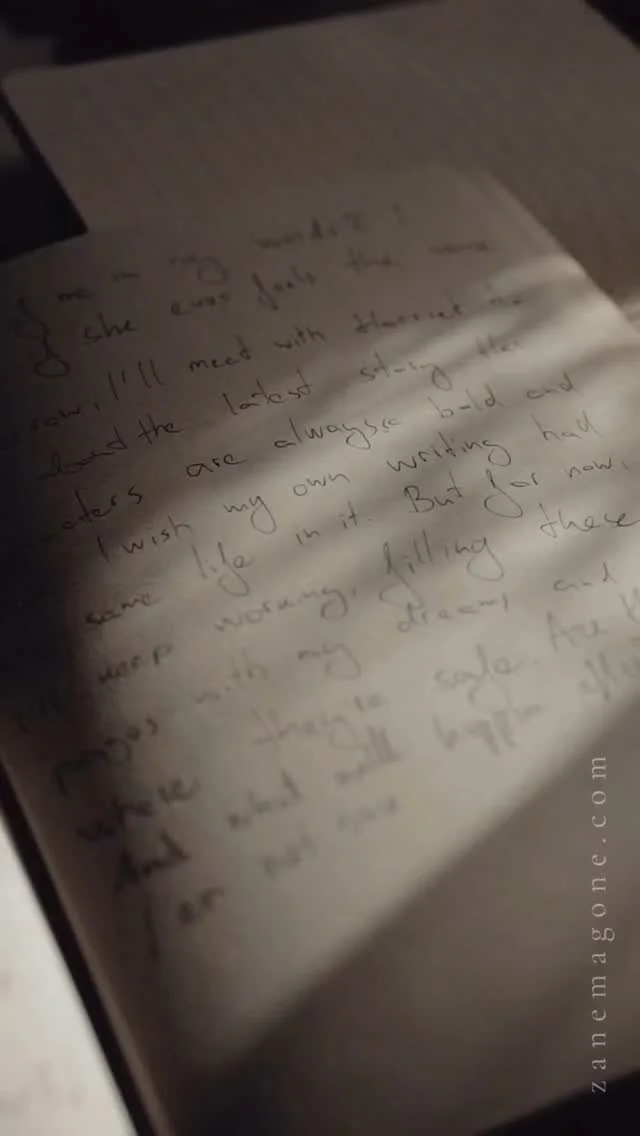 me in my words? I
if she ever feels the same
I'll meet with the
the latest story
are always bold and
I wish my own writing had
same life in it. But for now,
keep working, filling these
pages with my dreams and
where they're safe. Are
And what will happen
I am not sure
zanemagone.com